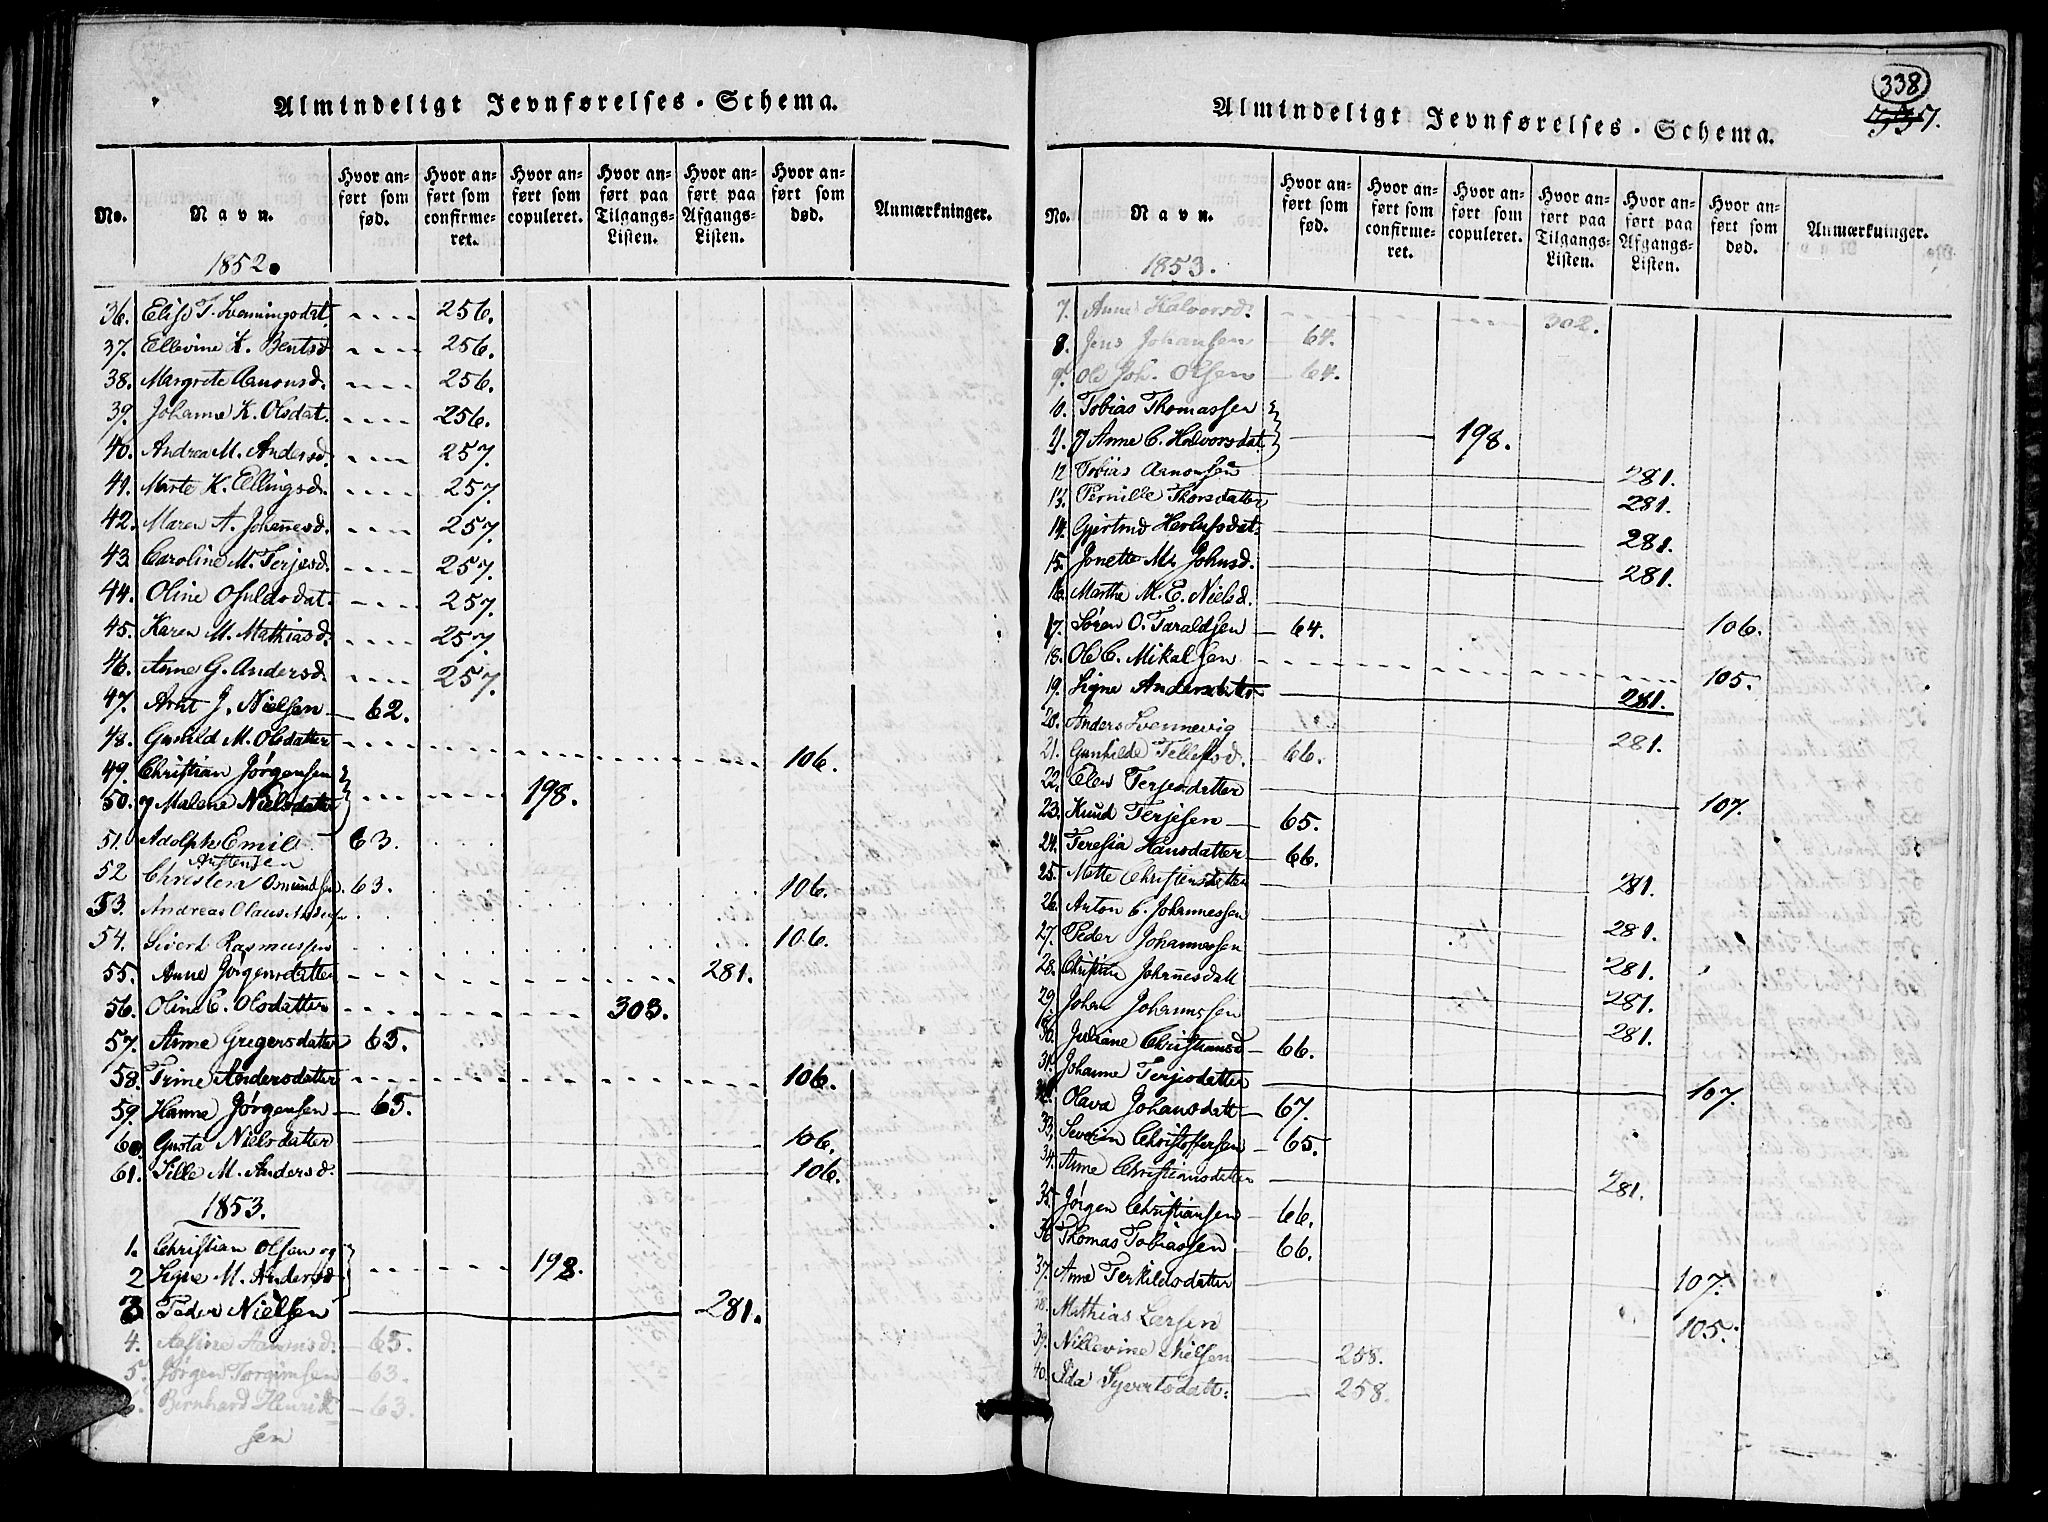 Almindeligt Jevnførelses-Schema.
No.
Navn.
Hvor anført som fød.
Hvor anført som confirmeret.
Hvor anført som copuleret.
Hvor anført paa Tilgangs-Listen.
Hvor anført paa Afgangs-Listen.
Hvor anført som død.
Anmærkninger.
1852.
36. Elise T. Svenningsdat. 256.
37. Ellevine K. Bentsd. 256.
38. Margrete Aanonsd. 256.
39. Johanne K. Olsdat. 256.
40. Andrea M. Andersd. 257.
41. Marte K. Ellingsd. 257.
42. Maren A. Johannesd. 257.
43. Caroline M. Terjesd. 257.
44. Oline Osuldsdat. 257.
45. Karen M. Mathiasd. 257.
46. Anne G. Andersd. 257.
47. Arnt J. Nielsen 62.
48. Gunild M. Olsdatter 106.
49. Christian Jørgensen
50. og Malene Nielsdatter 198.
51. Adolph Emil 63.
52 Christen Osmundsen 63. 106.
53. Andreas Olaus
54. Sivert Rasmussen 106.
55. Anne Jørgensdatter 281.
56. Oline C. Olsdatter 303.
57. Anne Gregersdatter 63.
58. Trine Andersdatter 106.
59. Hanna Jørgensen 65.
60. Gusta Nielsdatter 106.
61. Sille M. Andersd. 106.
1853.
1. Christian Olsen og
2 Signe M. Andersd. 198.
3 Peder Nielsen 281.
4. Aasine Aanonsd. 65.
5. Jørgen Torgrimsen 63.
6. Bernhard Henrik 63.
sen
338
337.
Almindeligt Jevnførelses-Schema.
No.
Navn.
Hvor anført som fød.
Hvor anført som confirmeret.
Hvor anført som copuleret.
Hvor anført paa Tilgangs-Listen.
Hvor anført paa Afgangs-Listen.
Hvor anført som død.
Anmærkninger.
1853.
7. Anne Halvorsd. 302.
8. Jens Johansen 64.
9. Ole Joh. Olsen 64.
10. Tobias Thomassen
11. og Anne C. Halvorsdat. 198.
12 Tobias Aanonsen 281.
13. Pernille Thorsdatter 281.
14. Gjertrud Herlufsdat. 281.
15. Jonette M. Johnsd. 281.
16. Marthe M. E. Nielsd.
17. Søren O. Taraldsen 64. 106.
18. Ole C. Mikalsen 105.
19. Signe Andersdatter 281.
20. Anders Svennevig 281.
21. Gunhilde Tellefsd. 66.
22. Elen Terjesdatter 107.
23. Knud Terjesen 65.
24. Teresia Hansdatter 66.
25. Mette Christensdatter 281.
26. Anton C. Johannessen 281.
27. Peder Johannessen 281.
28. Christine Johannesdatt 281.
29. Johan Johannssen 281.
30. Juliane Christiansd 66.
31. Johanne Terjesdatter 107.
32. Olava Johansdatt 67.
33. Severin Christoffersen 65.
34. Anne Christiansdatter 281.
35. Jørgen Christiansen 66.
36 Thomas Tobiassen 66.
37. Anne Terkildsdatter 107.
38. Mathias Larsen 105.
39. Nillevine Nielsen 258.
40. Ida Syvertsdatt. 258.